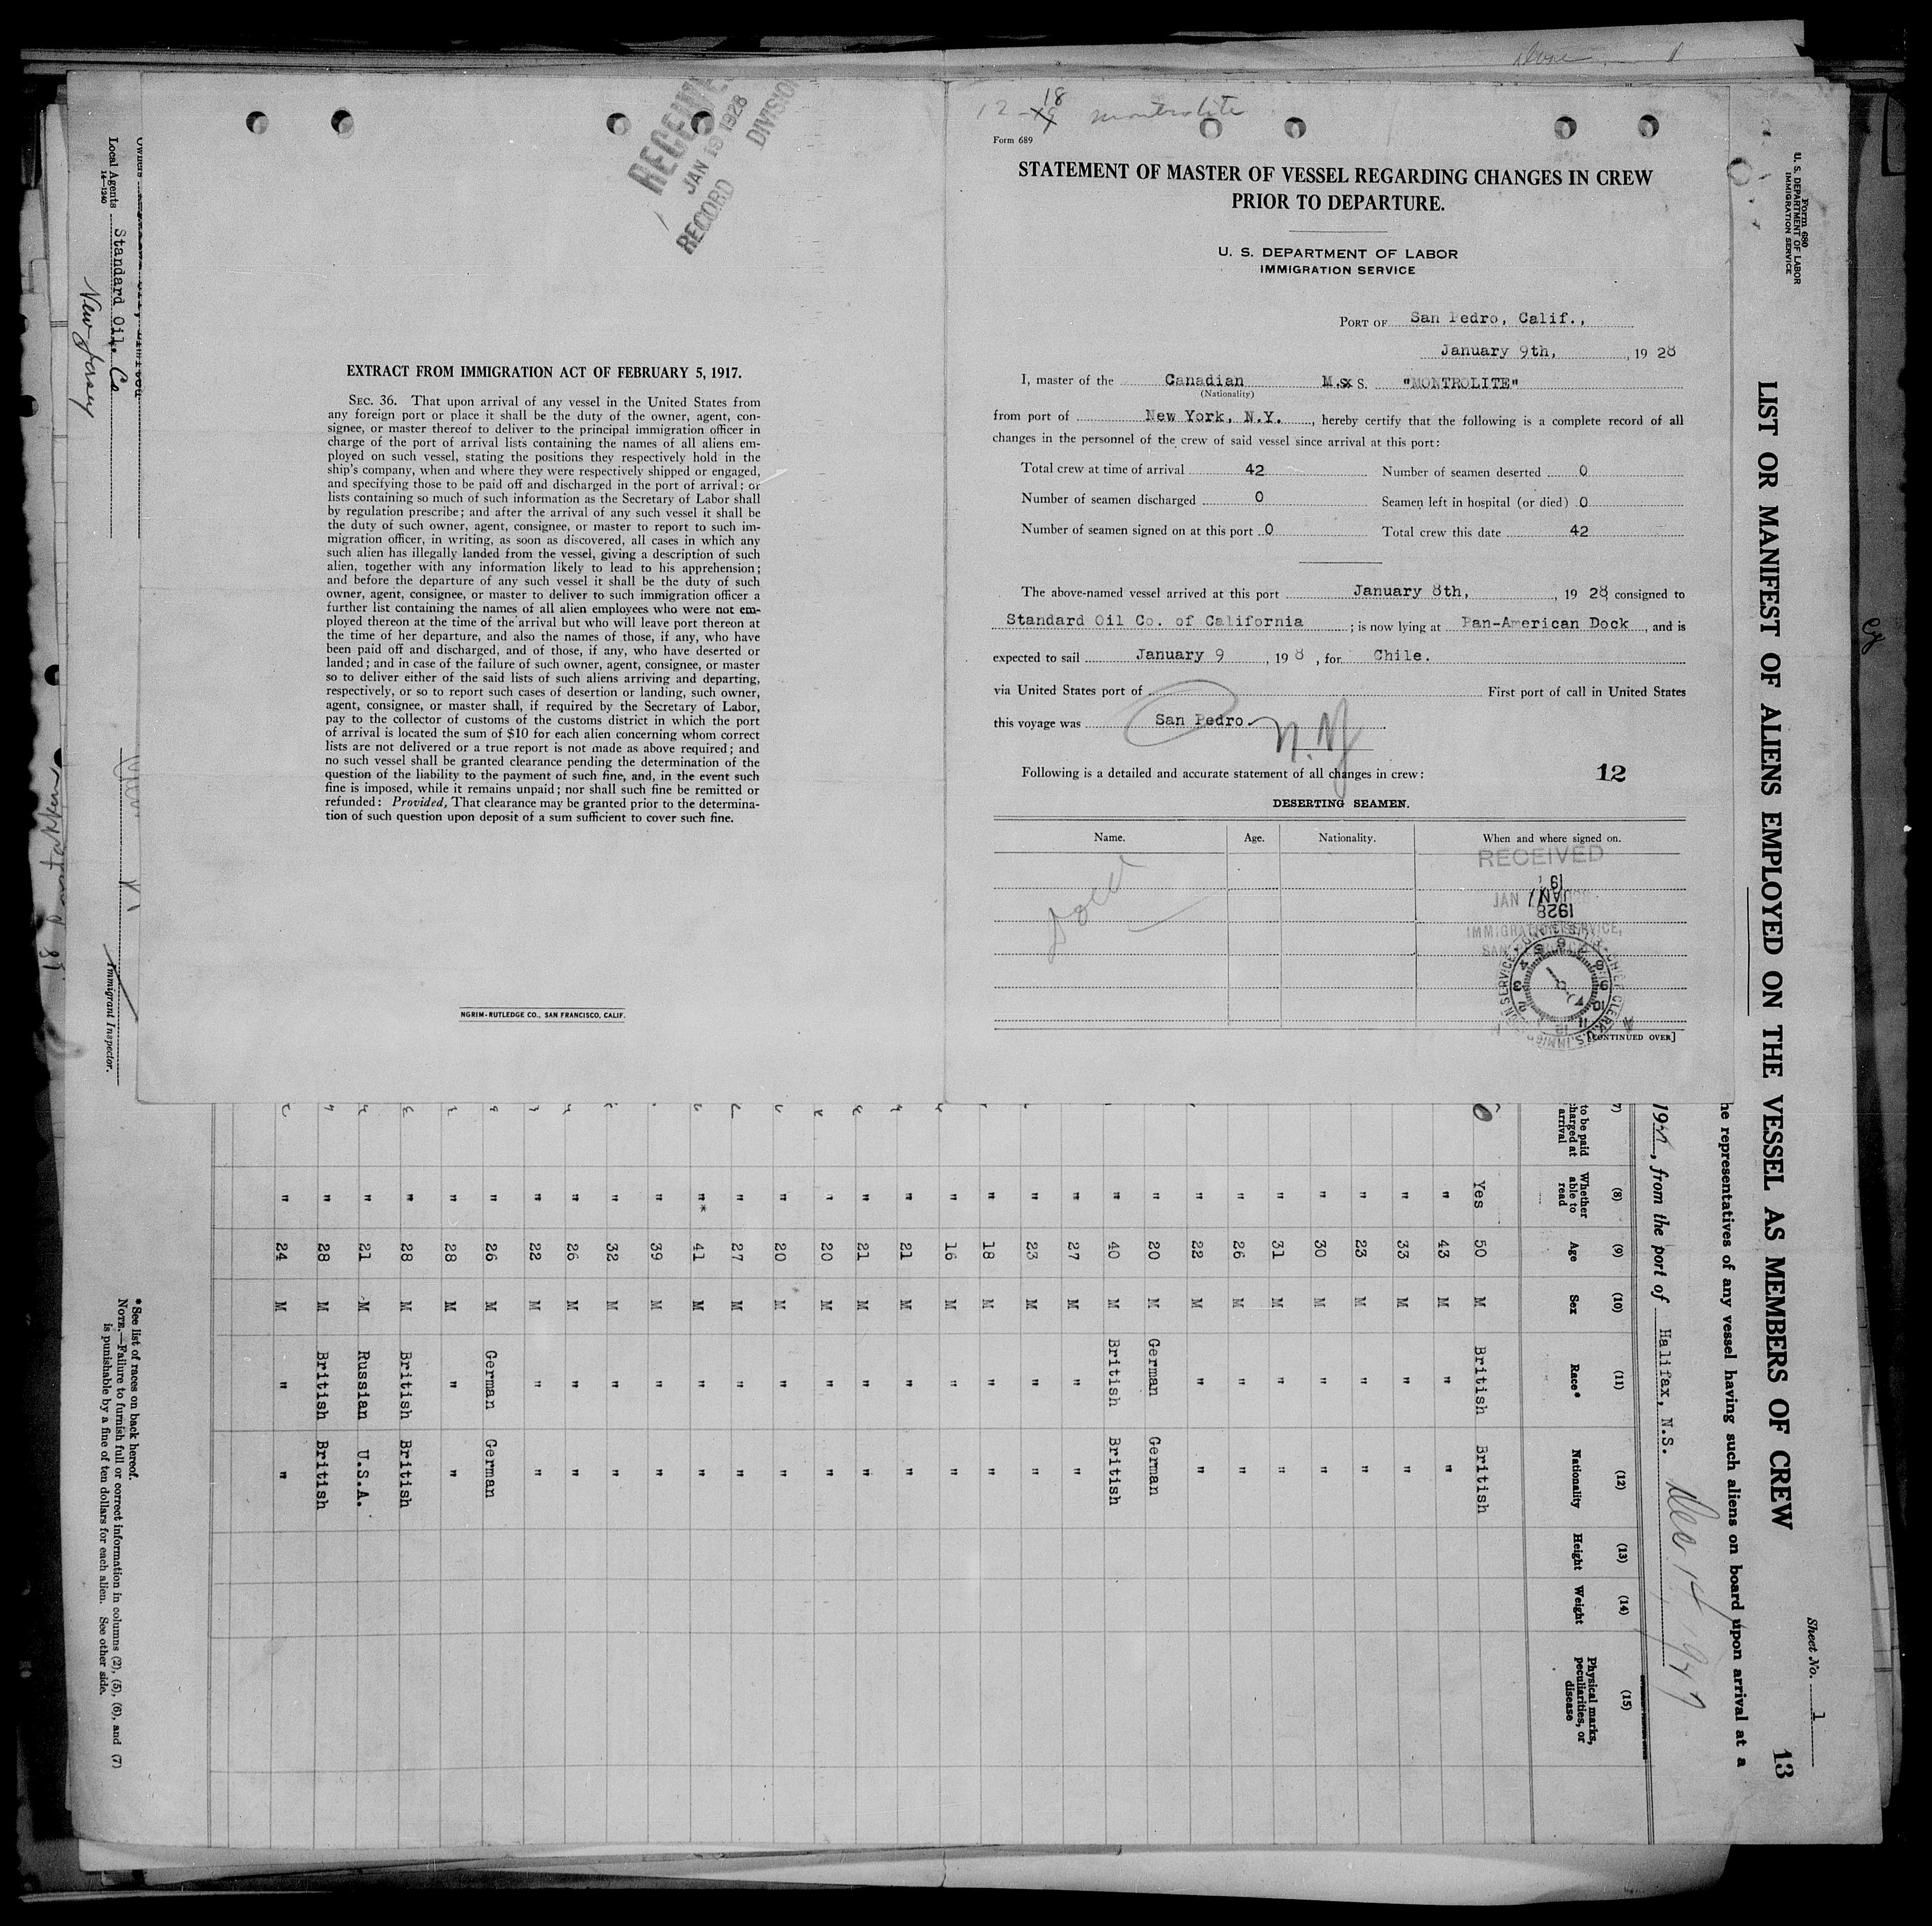 RECEIVE
JAN 19 1928
RECORD DIVISION
EXTRACT FROM IMMIGRATION ACT OF FEBRUARY 5, 1917.
SEC. 36. That upon arrival of any vessel in the United States from
any foreign port or place it shall be the duty of the owner, agent, con-
signee, or master thereof to deliver to the principal immigration officer in
charge of the port of arrival lists containing the names of all aliens em-
ployed on such vessel, stating the positions they respectively hold in the
ship's company, when and where they were respectively shipped or engaged,
and specifying those to be paid off and discharged in the port of arrival; or
lists containing so much of such information as the Secretary of Labor shall
by regulation prescribe; and after the arrival of any such vessel it shall be
the duty of such owner, agent, consignee, or master to report to such im-
migration officer, in writing, as soon as discovered, all cases in which any
such alien has illegally landed from the vessel, giving a description of such
alien, together with any information likely to lead to his apprehension;
and before the departure of any such vessel it shall be the duty of such
owner, agent, consignee, or master to deliver to such immigration officer a
further list containing the names of all alien employees who were not em-
ployed thereon at the time of the arrival but who will leave port thereon at
the time of her departure, and also the names of those, if any, who have
been paid off and discharged, and of those, if any, who have deserted or
landed; and in case of the failure of such owner, agent, consignee, or master
so to deliver either of the said lists of such aliens arriving and departing,
respectively, or so to report such cases of desertion or landing, such owner,
agent, consignee, or master shall, if required by the Secretary of Labor,
pay to the collector of customs of the customs district in which the port
of arrival is located the sum of $10 for each alien concerning whom correct
lists are not delivered or a true report is not made as above required; and
no such vessel shall be granted clearance pending the determination of the
question of the liability to the payment of such fine, and, in the event such
fine is imposed, while it remains unpaid; nor shall such fine be remitted or
refunded: Provided, That clearance may be granted prior to the determina-
tion of such question upon deposit of a sum sufficient to cover such fine.
NGRIM-RUTLEDGE CO., SAN FRANCISCO, CALIF.
12 - 18 montrolite
Form 689
STATEMENT OF MASTER OF VESSEL REGARDING CHANGES IN CREW
PRIOR TO DEPARTURE.
U. S. DEPARTMENT OF LABOR
IMMIGRATION SERVICE
PORT OF San Pedro, Calif.,
January 9th, , 19 28
I, master of the Canadian M.S. S. "MONTROLITE"
(Nationality)
from port of New York, N.Y. , hereby certify that the following is a complete record of all
changes in the personnel of the crew of said vessel since arrival at this port:
Total crew at time of arrival 42 Number of seamen deserted 0
Number of seamen discharged 0 Seamen left in hospital (or died) 0
Number of seamen signed on at this port 0 Total crew this date 42
The above-named vessel arrived at this port January 8th, , 19 28, consigned to
Standard Oil Co. of California ; is now lying at Pan-American Dock , and is
expected to sail January 9 , 19 8 , for Chile.
via United States port of First port of call in United States
this voyage was San Pedro. N.Y
Following is a detailed and accurate statement of all changes in crew: 12
DESERTING SEAMEN.
Name. Age. Nationality. When and where signed on.
RECEIVED
JAN
1928
IMMIGRATION SERVICE,
[CONTINUED OVER]
Form 680
U. S. DEPARTMENT OF LABOR
IMMIGRATION SERVICE
Sheet No. 1
13
LIST OR MANIFEST OF ALIENS EMPLOYED ON THE VESSEL AS MEMBERS OF CREW
he representatives of any vessel having such aliens on board upon arrival at a
, from the port of Halifax, N.S. Dec 1st 1927
7) (8) (9) (10) (11) (12) (13) (14) (15)
to be paid
harged at
arrival
Whether
able to
read
Age Sex Race* Nationality Height Weight
Physical marks,
peculiarities, or
disease
Yes 50 M British British
" 43 M " "
" 33 M " "
" 23 M " "
" 30 M " "
" 31 M " "
" 26 M " "
" 22 M " "
" 20 M German German
" 40 M British British
" 27 M " "
" 23 M " "
" 18 M " "
" 16 M " "
" 21 M " "
" 21 M " "
" 20 M " "
" 20 M " "
" 27 M " "
"* 41 M " "
" 39 M " "
" 32 M " "
" 26 M " "
" 22 M " "
" 26 M German German
" 28 M " "
" 28 M British British
" 21 M Russian U.S.A.
" 28 M British British
" 24 M " "
*See list of races on back hereof.
NOTE.—Failure to furnish full or correct information in columns (2), (5), (6), and (7)
is punishable by a fine of ten dollars for each alien. See other side.
Owners
Local Agents Standard Oil. Co
14—1240
New Jersey
Immigrant Inspector.